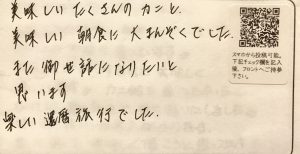 美味しいたくさんのカニと、
美味しい朝食に大まんぞくでした。
また御世話になりたいと
思います
楽しい還暦旅行でした。
スマホから投稿可能。
下記チェック欄を記入
後、フロントへご持参
下さい。